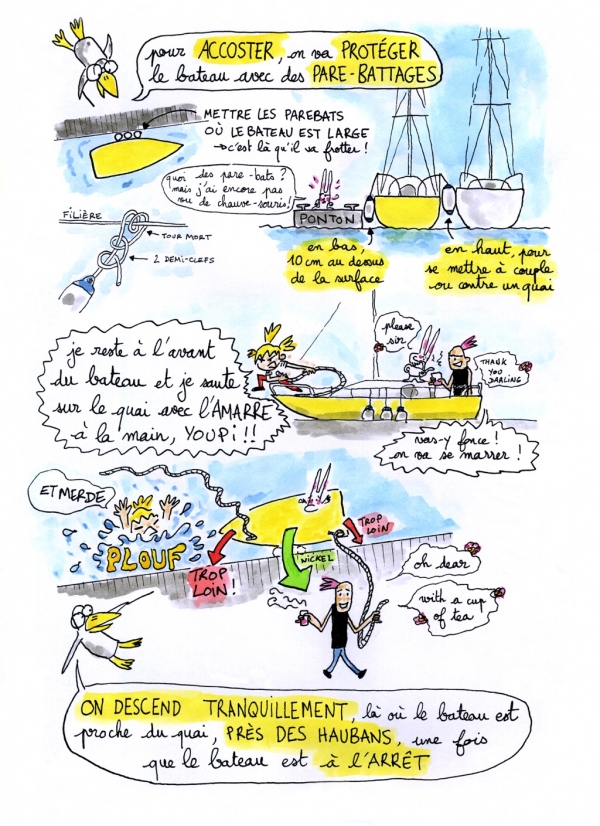 pour ACCOSTER, on va PROTÉGER
le bateau avec des PARE-BATTAGES
METTRE LES PAREBATS
OÙ LE BATEAU EST LARGE
→ c'est là qu'il va frotter !
quoi des pare-bats ?
mais j'ai encore pas
vu de chauve-souris !
PONTON
FILIÈRE
TOUR MORT
2 DEMI-CLEFS
en bas,
10 cm au dessus
de la surface
en haut, pour
se mettre à couple
ou contre un quai
je reste à l'avant
du bateau et je saute
sur le quai avec l'AMARRE
à la main, YOUPI !!
please
sir
THANK
YOU
DARLING
vas-y fonce !
on va se marrer !
ET MERDE
PLOUF
TROP
LOIN !
NICKEL
TROP
LOIN
oh dear
with a cup
of tea
ON DESCEND TRANQUILLEMENT, là où le bateau est
proche du quai, PRÈS DES HAUBANS, une fois
que le bateau est à l'ARRÊT